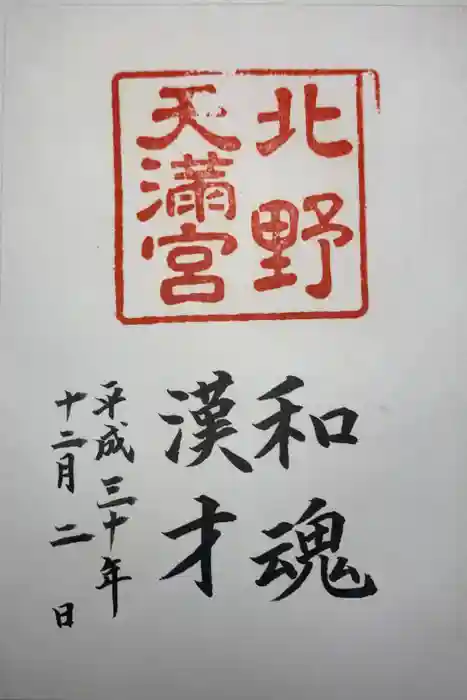 北野
天満宮
和魂
漢才
平成三十年
十二月二日